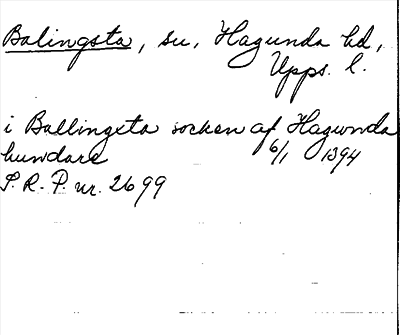 Balingsta, sn, Hagunda hd,
Upps. l.
i Ballingxta socken af Hagwnda
hundare 6/1 1394
S.R.P. nr. 2699